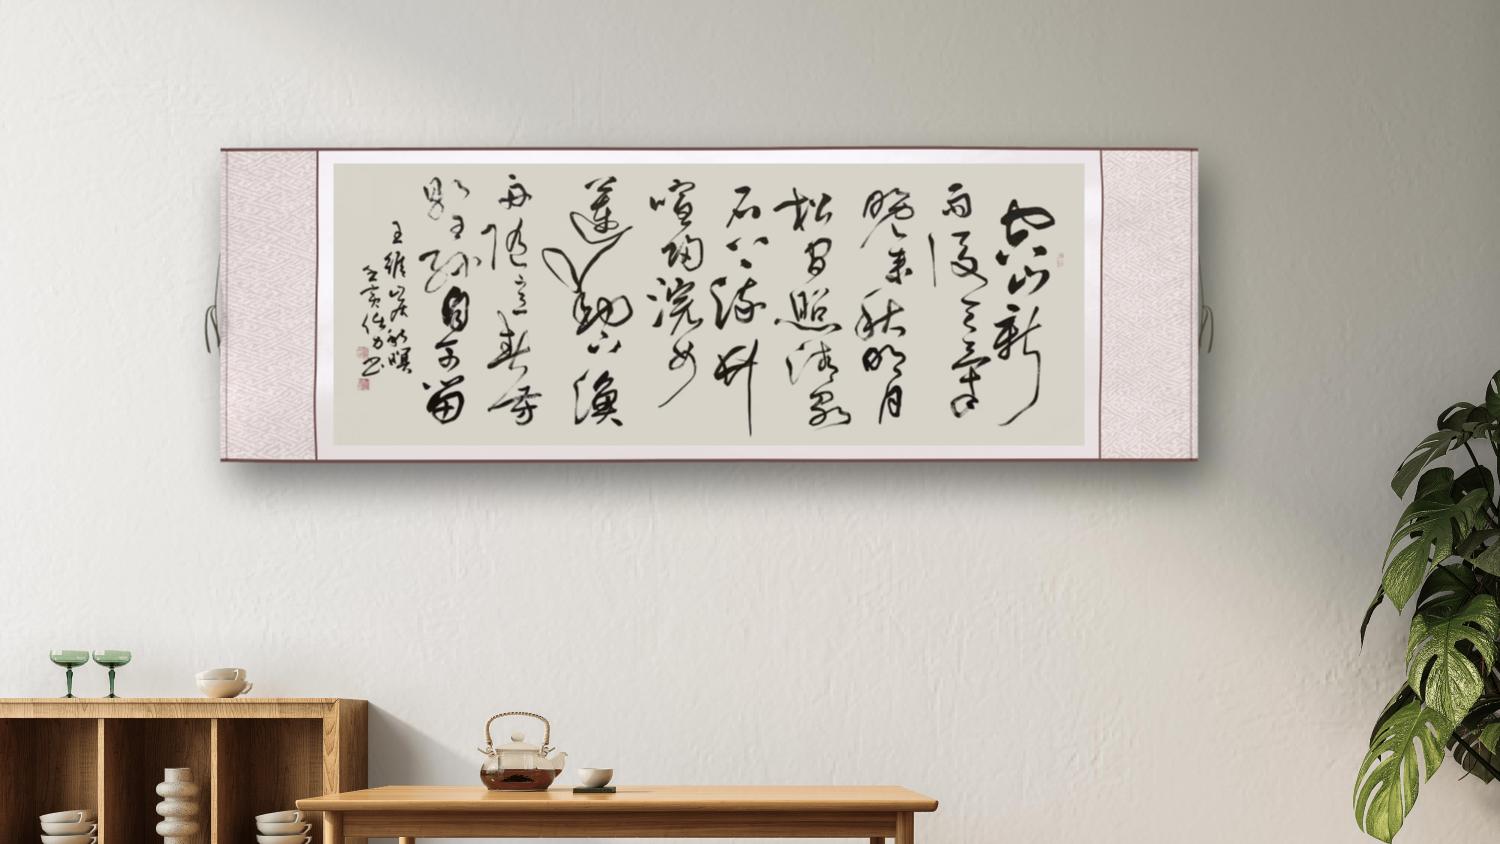 空山新
雨後天氣
晚来秋明月
松间照清泉
石上流竹
喧歸浣女
蓮動下漁
舟随意春芳
歇王孫自可留
王維山居秋暝
壬寅
书